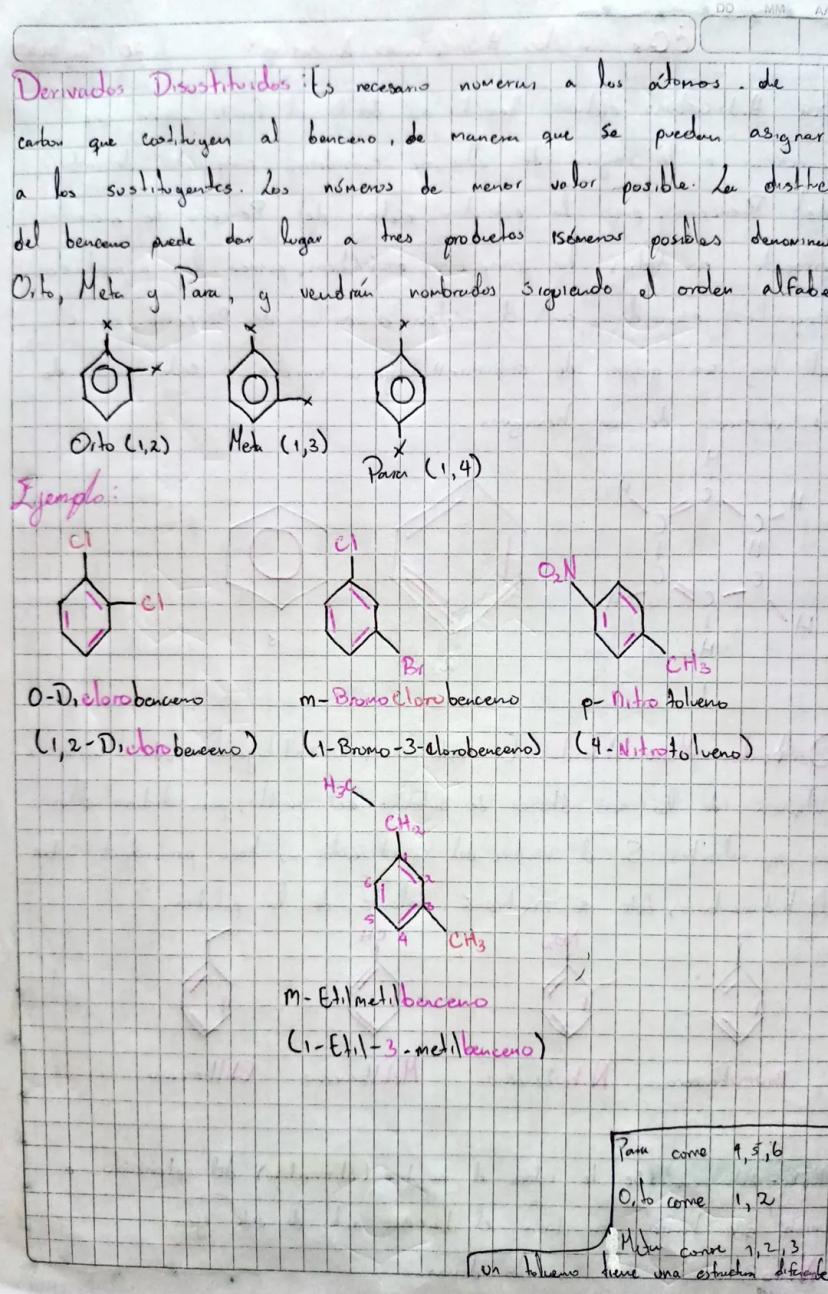 DD MM
Derivados Disustituidos: Es necesario numerar a los átomos. de
carbon que costituyen al benceno, de manera que se puedan asignar
a los sustituyentes. Los números de menor valor posible. La
del benceno puede dar lugar a tres productos isómeros posibles
Orto, Meta y Para, y vendrán nombrados siguiendo el orden
X X X
X X
Orto (1,2) Meta (1,3) X
Para (1,4)
Ejemplo:
Cl Cl O₂N
Cl Br CH₃
O-Diclorobenceno m-Bromoclorobenceno p-Nitrotolueno
(1,2-Diclorobenceno) (1-Bromo-3-clorobenceno) (4-Nitrotolueno)
H₃C
CH₂
1
6 2
5 3
4 CH₃
m-Etilmetilbenceno
(1-Etil-3-metilbenceno)
Para come 4,5,6
Orto come 1,2
Meta come 1,2,3
un tolueno tiene una estructura diferente